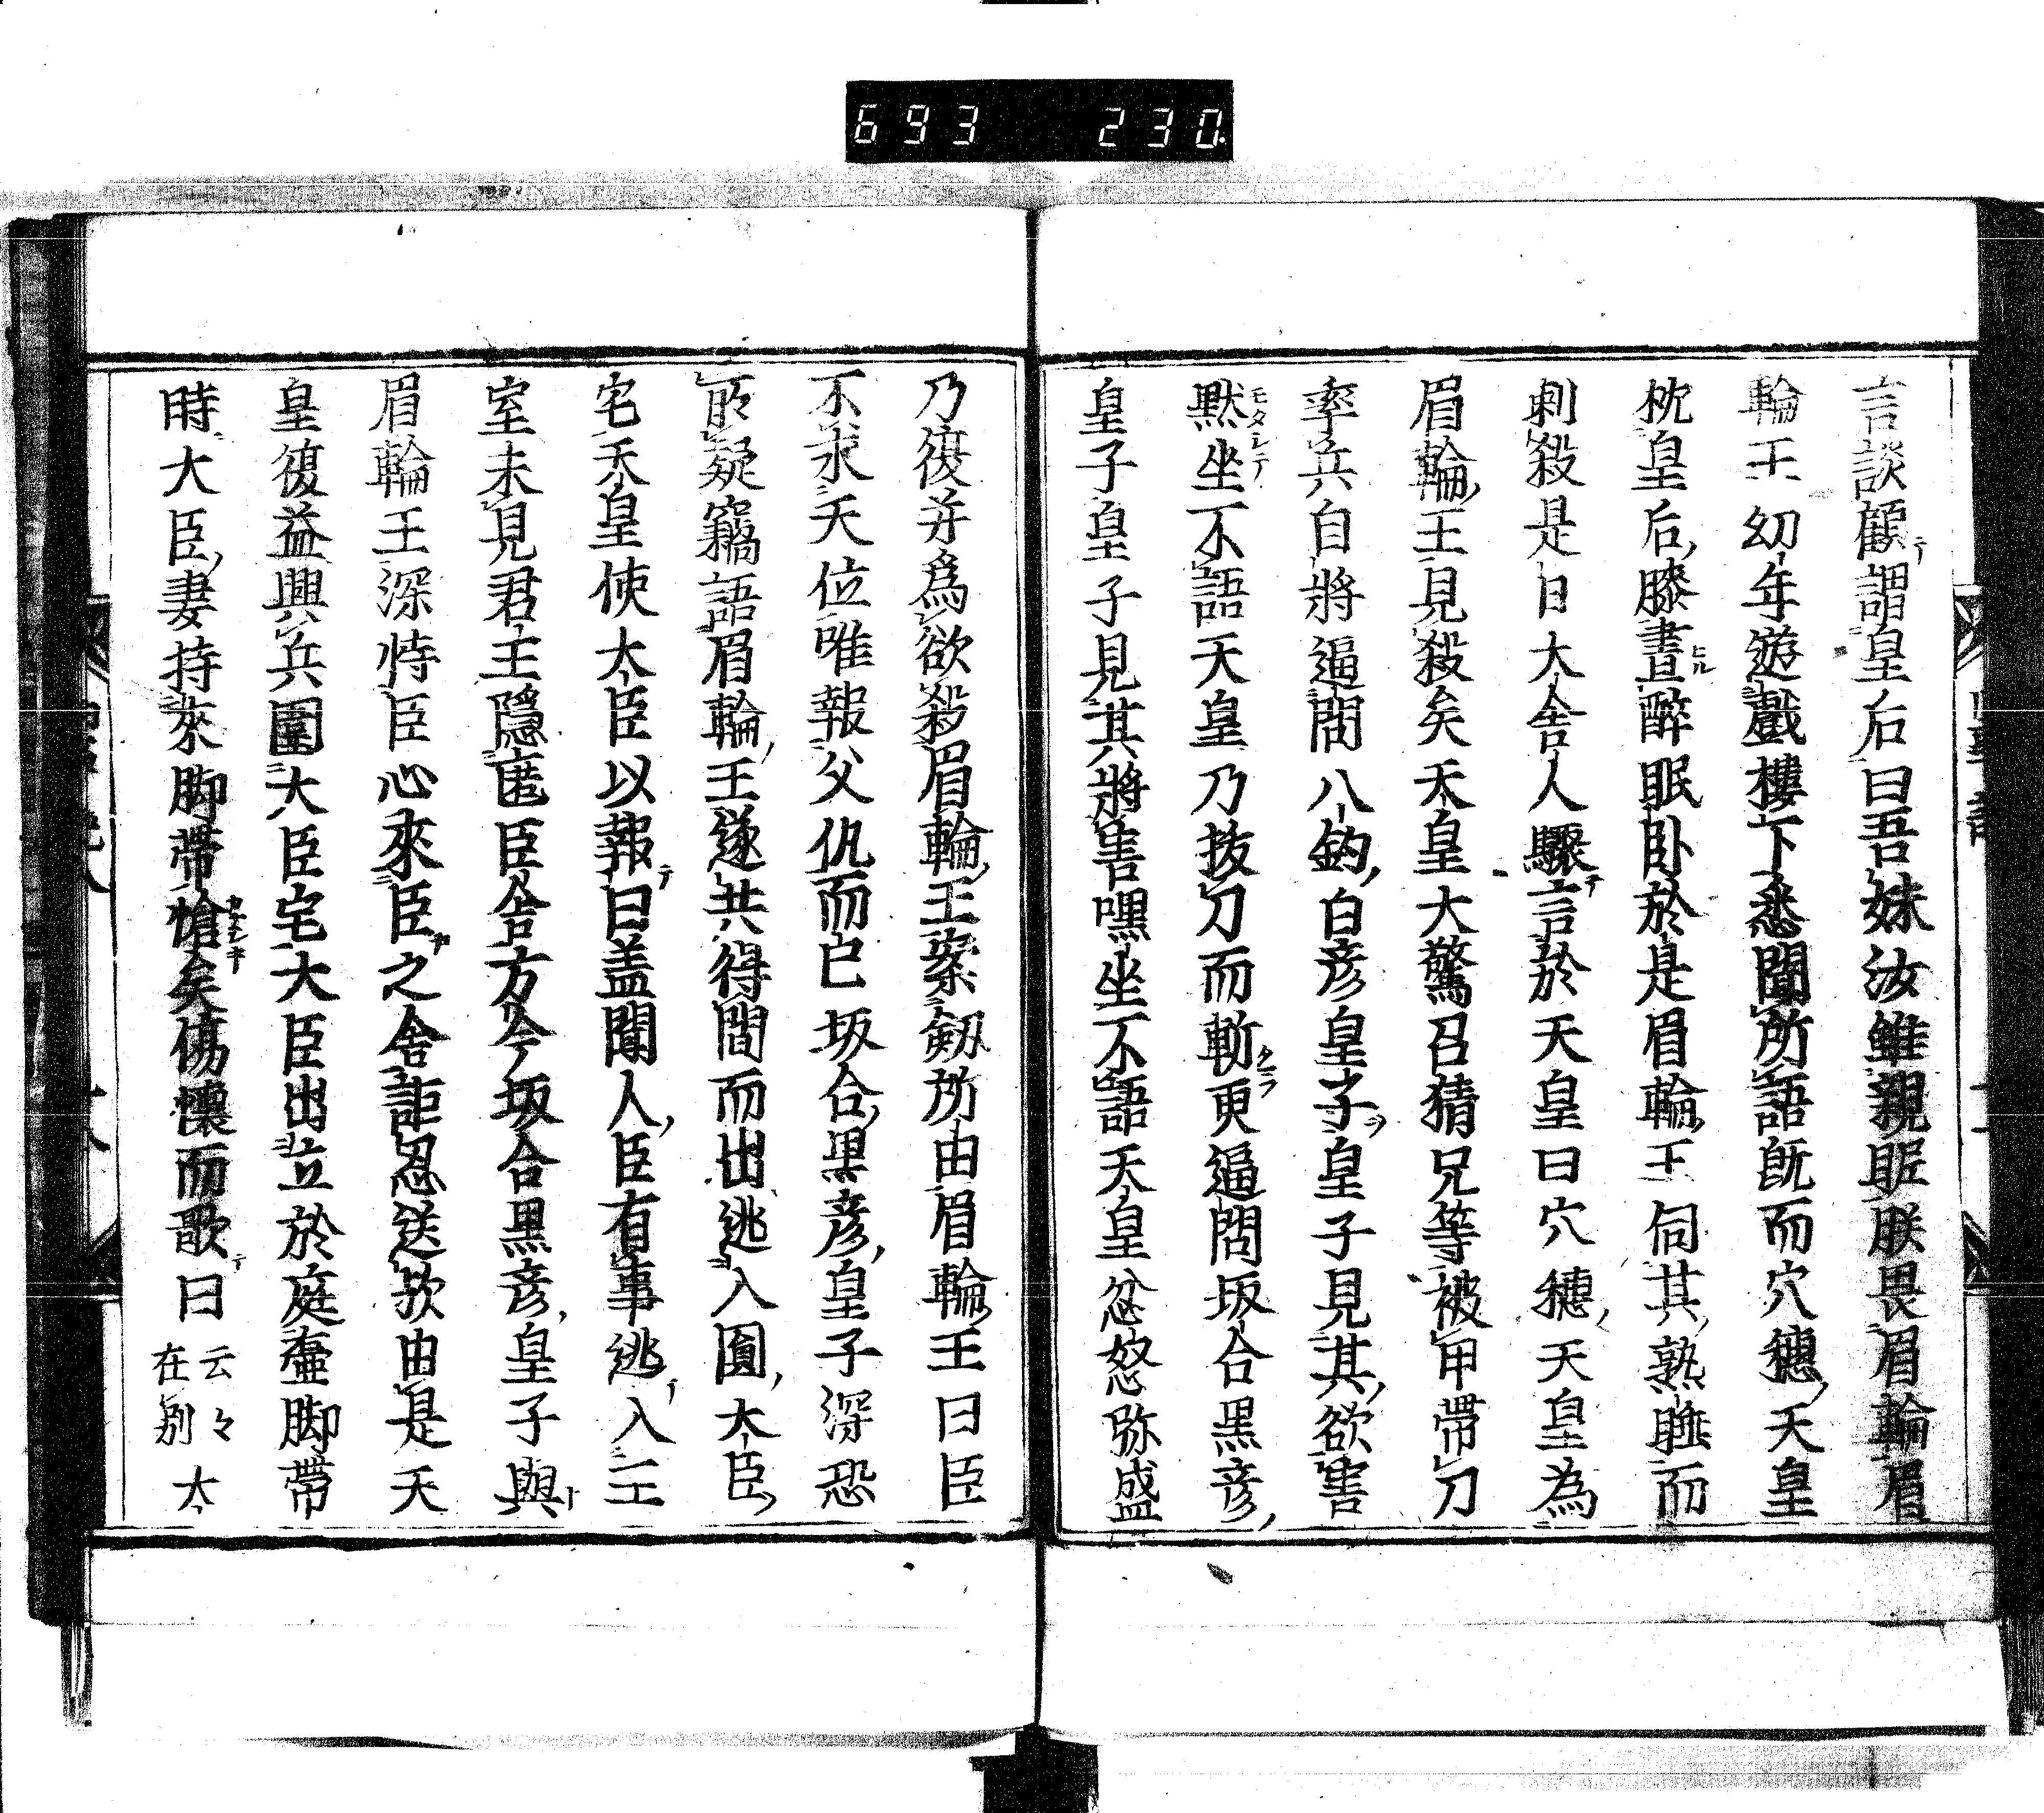 693 230
言談顧謂皇后曰吾妹汝雖親昵朕畏眉輪眉
輪王幼年遊戲樓下悉聞所語既而穴穗天皇
枕皇后膝晝醉眠臥於是眉輪王伺其熟睡而
刺殺是日大舍人驟言於天皇曰穴穗天皇為
眉輪王見殺矣天皇大驚召猜兄等被甲帶刀
率兵自將逼問八鈎白彥皇子皇子見其欲害
默坐不語天皇乃拔刀而斬更逼問坂合黑彥
皇子皇子見其將害嘿坐不語天皇忿怒弥盛
乃復并爲欲殺眉輪王案劔所由眉輪王曰臣
不求天位唯報父仇而已坂合黑彥皇子深恐
所疑竊語眉輪王遂共得間而出逃入圓大臣
宅天皇使大臣以報曰盖聞人臣有事逃入王
室未見君王隱匿臣舍方今坂合黑彥皇子與
眉輪王深恃臣心來臣之舍詎忍送歟由是天
皇復益興兵圍大臣宅大臣出立於庭壷脚帶
時大臣妻持來脚帶愴矣傷懷而歌曰云々在別大